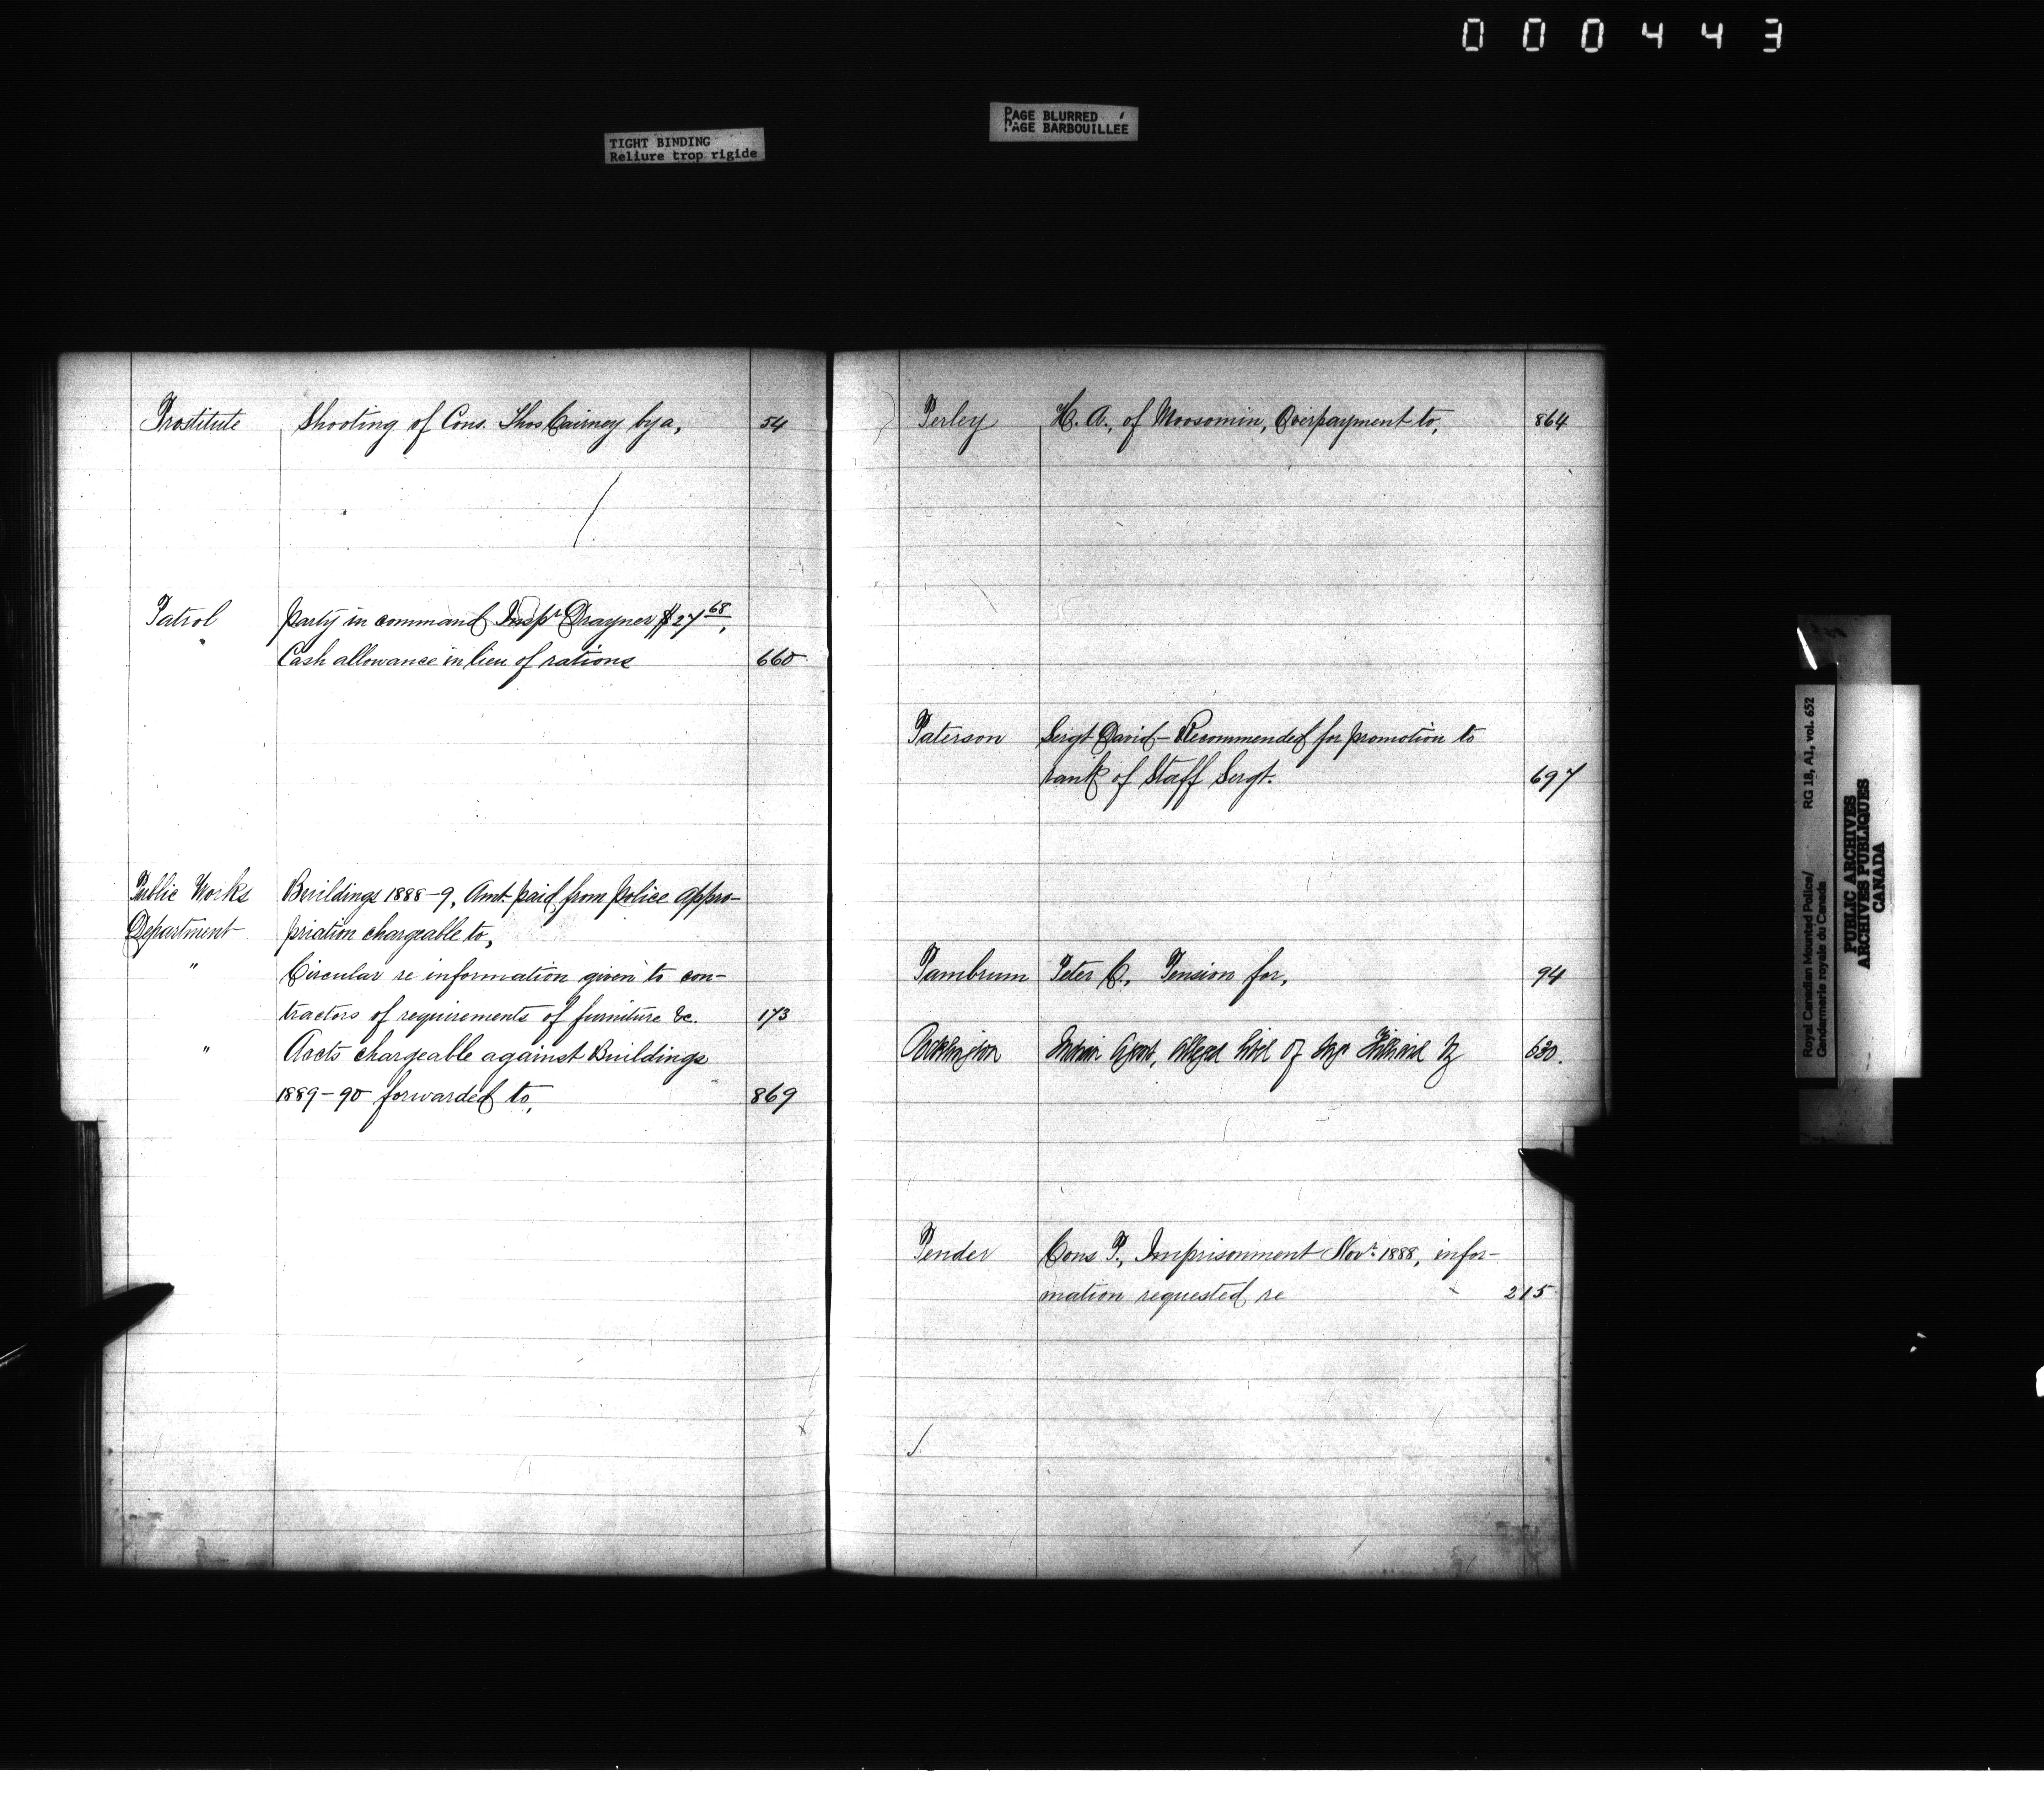 000443
PAGE BLURRED
PAGE BARBOUILLEE
TIGHT BINDING
Reliure trop rigide
Prostitute Shooting of Cons. Thos Cairney by a, 54
Patrol Party in command Inspr Drayner $27 68,
" Cash allowance in lieu of rations 660
Public Works Buildings 1888-9, Amt. paid from Police appro-
Department priation chargeable to,
" Circular re information given to con-
tractors of requirements of furniture &c. 173
" Accts chargeable against Buildings
1889-90 forwarded to, 869
Perley H. A., of Moosomin, Overpayment to, 864
Paterson Sergt David - Recommended for promotion to
rank of Staff Sergt. 697
Pambrum Peter C., Pension for, 94
Pocklington Indian Agent, Alleged libel of by 630.
Pender Cons P., Imprisonment Novr. 1888, infor-
mation requested re 215
Royal Canadian Mounted Police/ RG 18, A1, vol. 652
Gendarmerie royale du Canada
PUBLIC ARCHIVES
ARCHIVES PUBLIQUES
CANADA